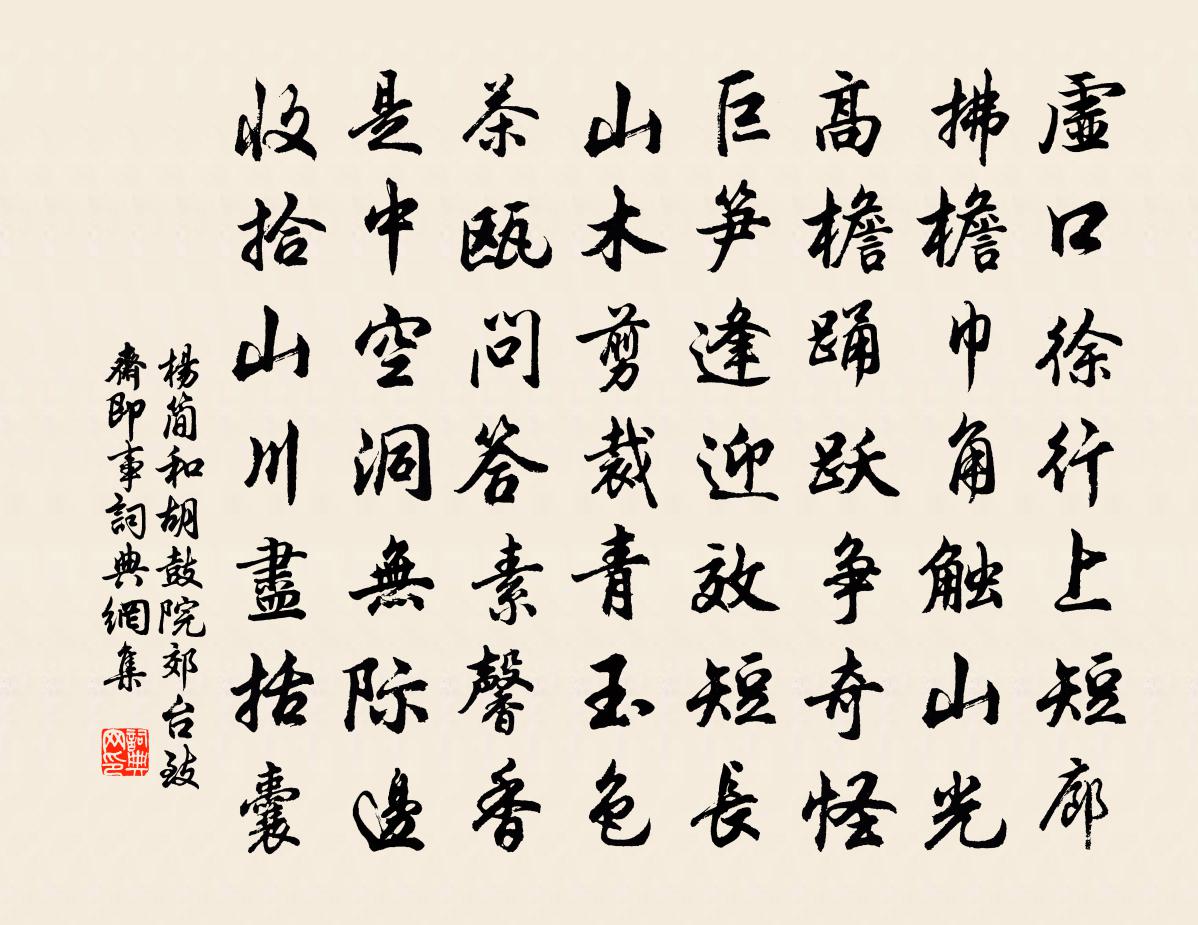 虛口徐行上短廊
拂檐巾角触山光
高檐踊跃争奇怪
巨笋逢迎效短長
山木剪裁青玉色
茶甌問答素馨香
是中空洞無际邊
收拾山川盡括囊
楊简和胡鼓院郊台致
齋即事詞典網集
詞典网印